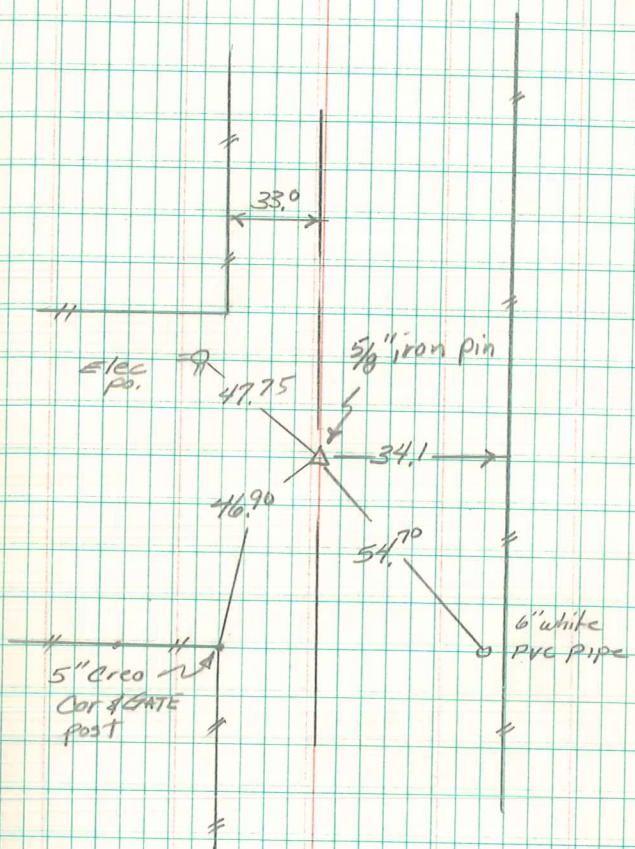 33.0
5/8" iron pin
Elec
po.
47.75
34.1
46.90
54.70
6" white
pvc pipe
5" Creo
Cor & GATE
post